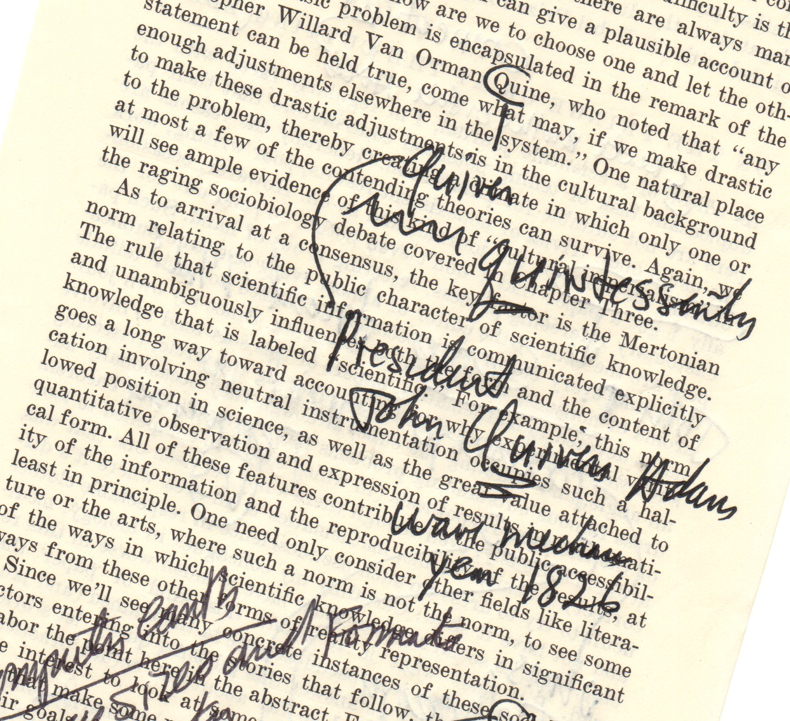 ifficulty is th
can give a plausible account o
there are always man
how are we to choose one and let the oth-
sic problem is encapsulated in the remark of the
opher Willard Van Orman Quine, who noted that "any
statement can be held true, come what may, if we make drastic
enough adjustments elsewhere in the system." One natural place
to make these drastic adjustments is in the cultural background
to the problem, thereby creating a climate in which only one or
at most a few of the contending theories can survive. Again, we
will see ample evidence of this kind of "cultural
the raging sociobiology debate covered in Chapter Three.
As to arrival at a consensus, the key factor is the Mertonian
norm relating to the public character of scientific knowledge.
The rule that scientific information is communicated explicitly
and unambiguously influences both the form and the content of
knowledge that is labeled "scientific." For example, this norm
goes a long way toward accounting for why experimental
cation involving neutral instrumentation occupies such a hal-
lowed position in science, as well as the great value attached to
quantitative observation and expression of results in mathemati-
cal form. All of these features contribute to the public accessibil-
ity of the information and the reproducibility of the results, at
least in principle. One need only consider other fields like litera-
ture or the arts, where such a norm is not the norm, to see some
of the ways in which scientific knowledge differs in significant
ways from these other forms of reality representation.
Since we'll see many concrete instances of these soc
ctors entering into the stories that follow, th
abor the point here in the abstract. F
e interest to look at some
that make some
ir goals
Quiver
quintessential
President
John Quincy Adams
wave
year 1826
earth
and Formate